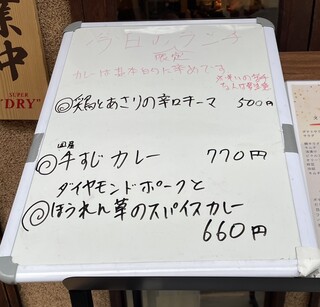 業中
SUPER
"DRY"
今日のランチ
限定
カレーは基本的に辛めです
◎鶏とあさりの辛口キーマ 500円
国産
◎牛すじカレー 770円
ダイヤモンドポークと
◎ほうれん草のスパイスカレー
660円